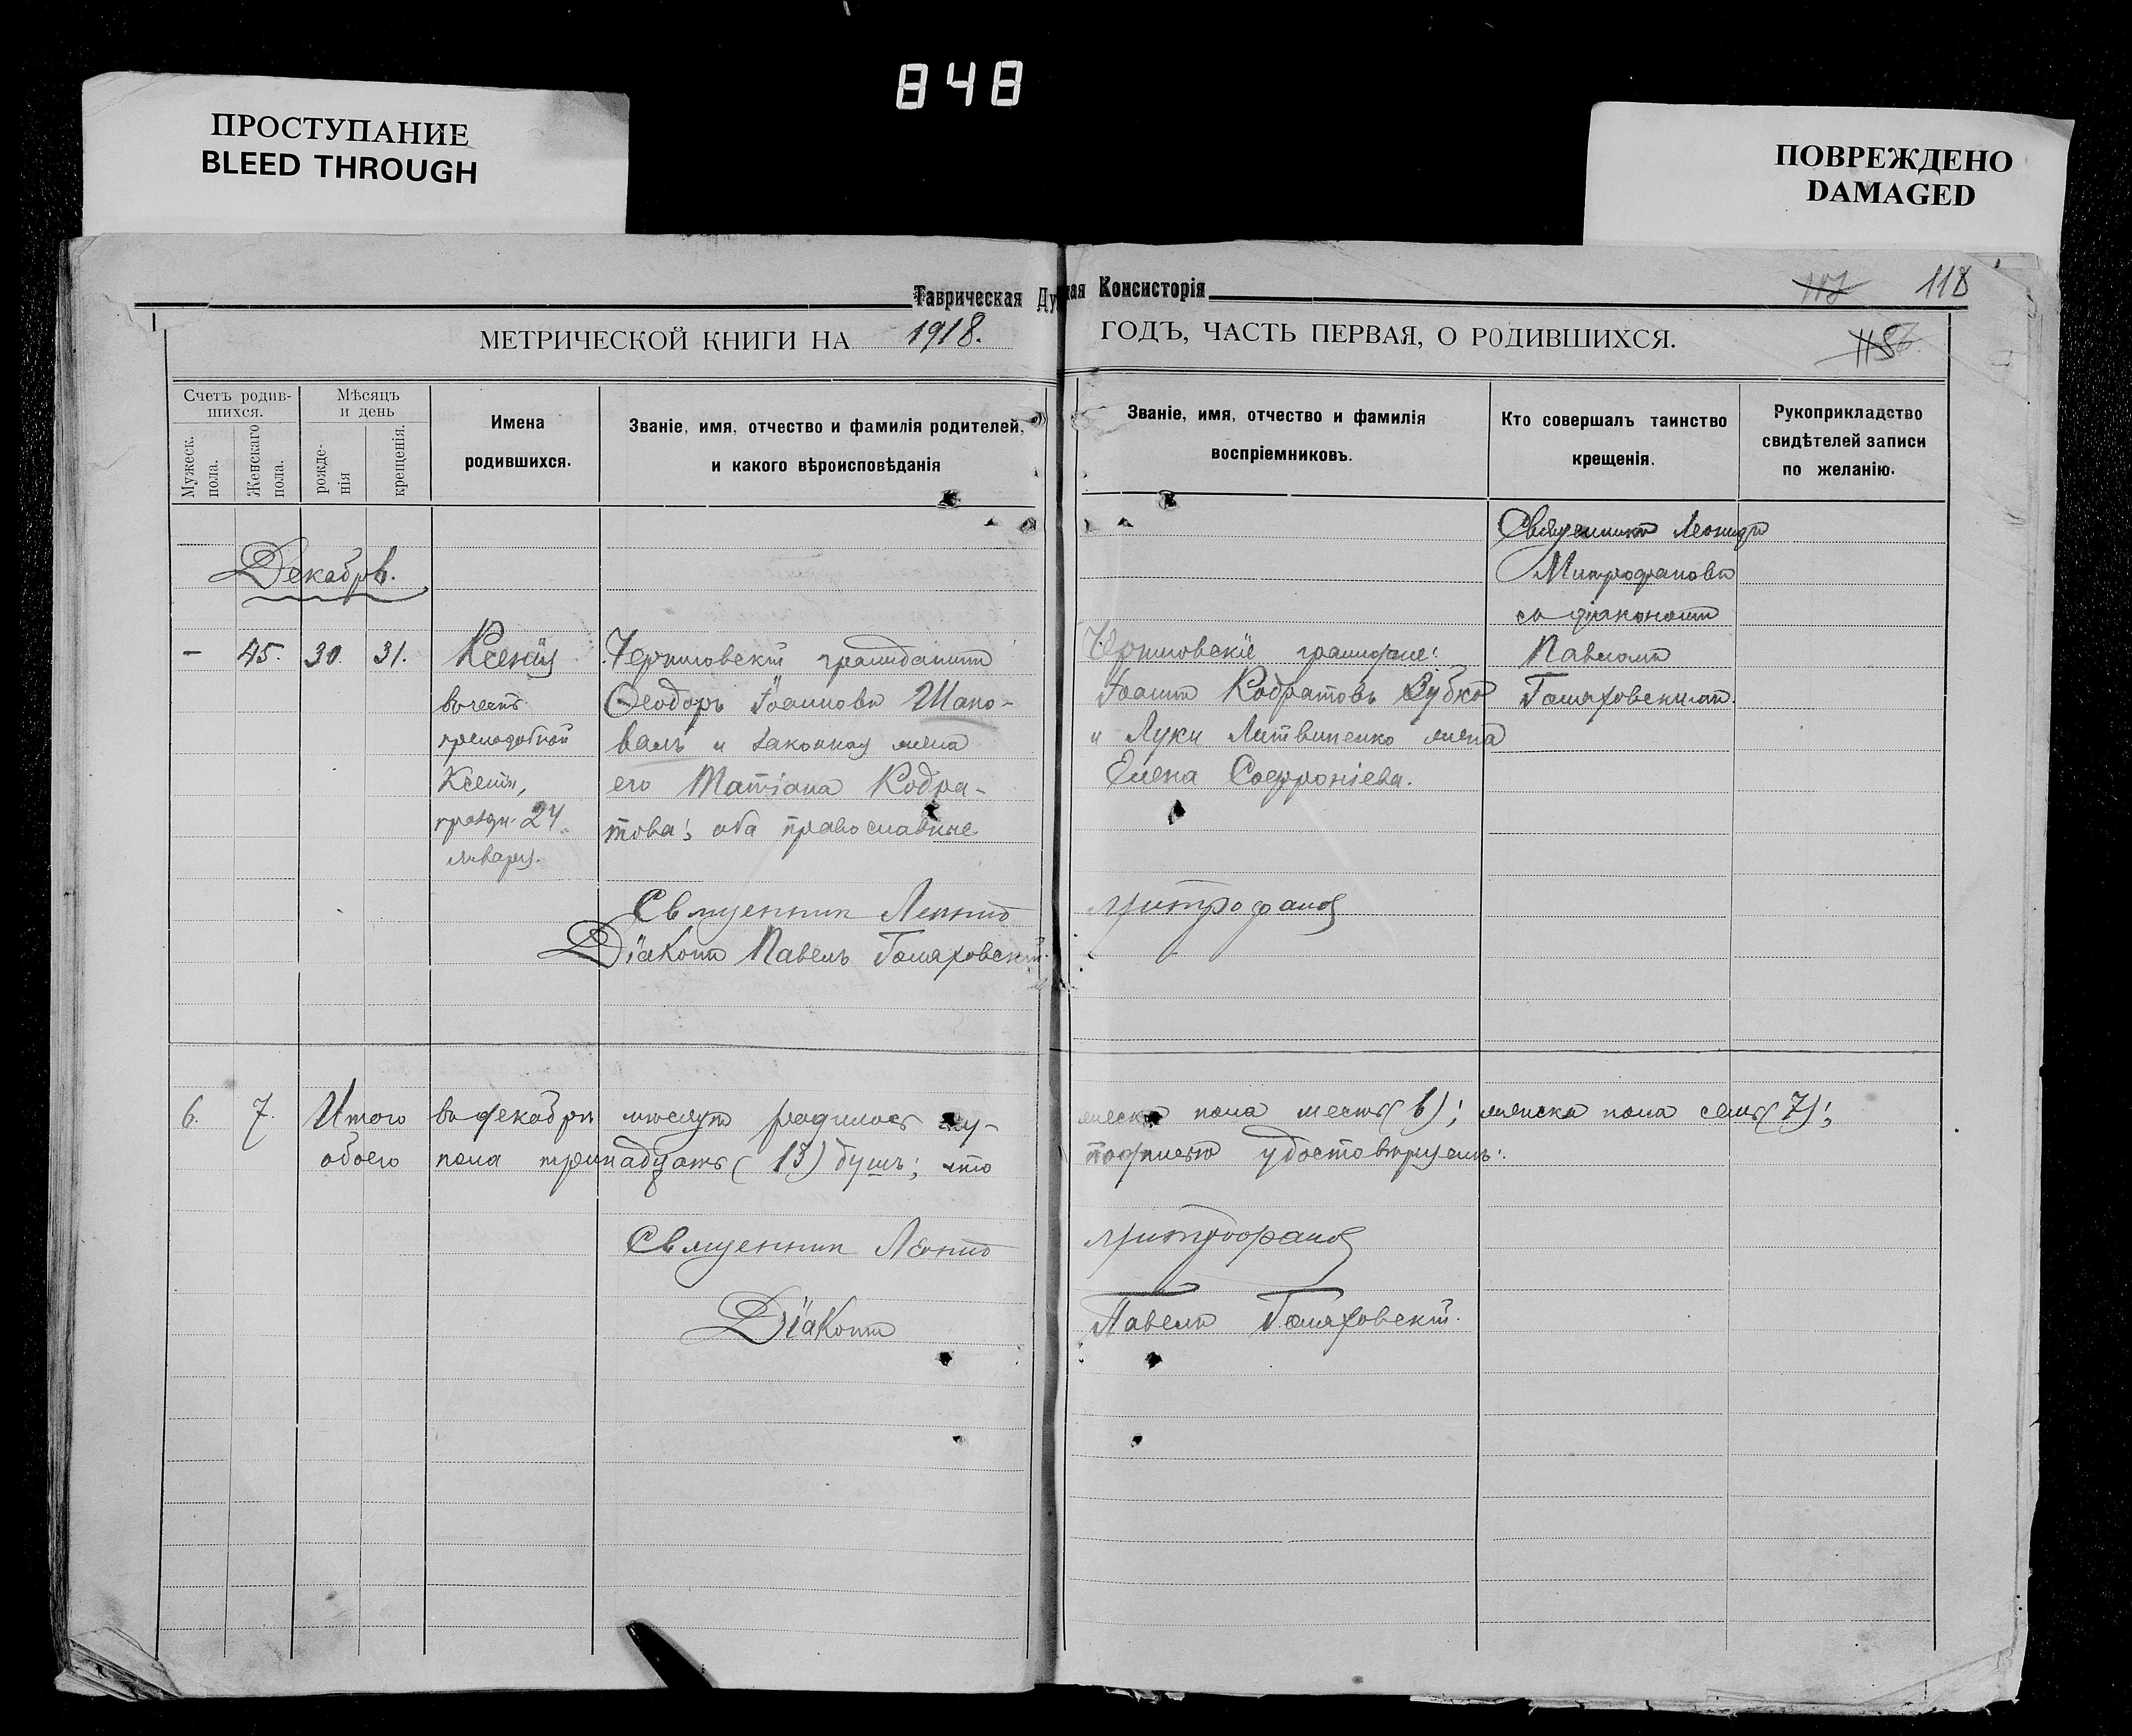 848
ПРОСТУПАНИЕ
BLEED THROUGH
ПОВРЕЖДЕНО
DAMAGED
Таврическая Ду
ная Консисторія
118
МЕТРИЧЕСКОЙ КНИГИ НА 1918.
ГОДЪ, ЧАСТЬ ПЕРВАЯ, О РОДИВШИХСЯ.
Счетъ родив-
шихся.
Мужеск.
пола.
Женскаго
пола.
Мѣсяцъ
и день
рожде-
нія
крещенія.
Имена
родившихся.
Званіе, имя, отчество и фамилія родителей,
и какого вѣроисповѣданія
Званіе, имя, отчество и фамилія
воспріемниковъ.
Кто совершалъ таинство
крещенія.
Рукоприкладство
свидѣтелей записи
по желанію.
Декабрь.
- 45. 30. 31.
Ксенія
въ честь
преподобной
Ксеніи,
праздн. 24
января.
гражданинъ
Ѳеодоръ Іоанновъ Шапо-
валъ и законная жена
его Татіана Кодра-
това; оба православные
граждане:
Іоаннъ Кодратовъ Зубко
и Луки Литвиненко жена
Елена Софроніева.
Священникъ Леонидъ
Митрофановъ
съ діакономъ
Павломъ
Священник Леонид
Митрофанов
Діаконъ Павелъ
6. 7. Итого въ декабрѣ мѣсяцѣ родилось му-
жеска пола шесть (6); женска пола семь (7);
обоего пола тринадцать (13) душъ; что
подписью удостовѣряемъ:
Священник Леонид
Митрофанов
Діаконъ
Павелъ